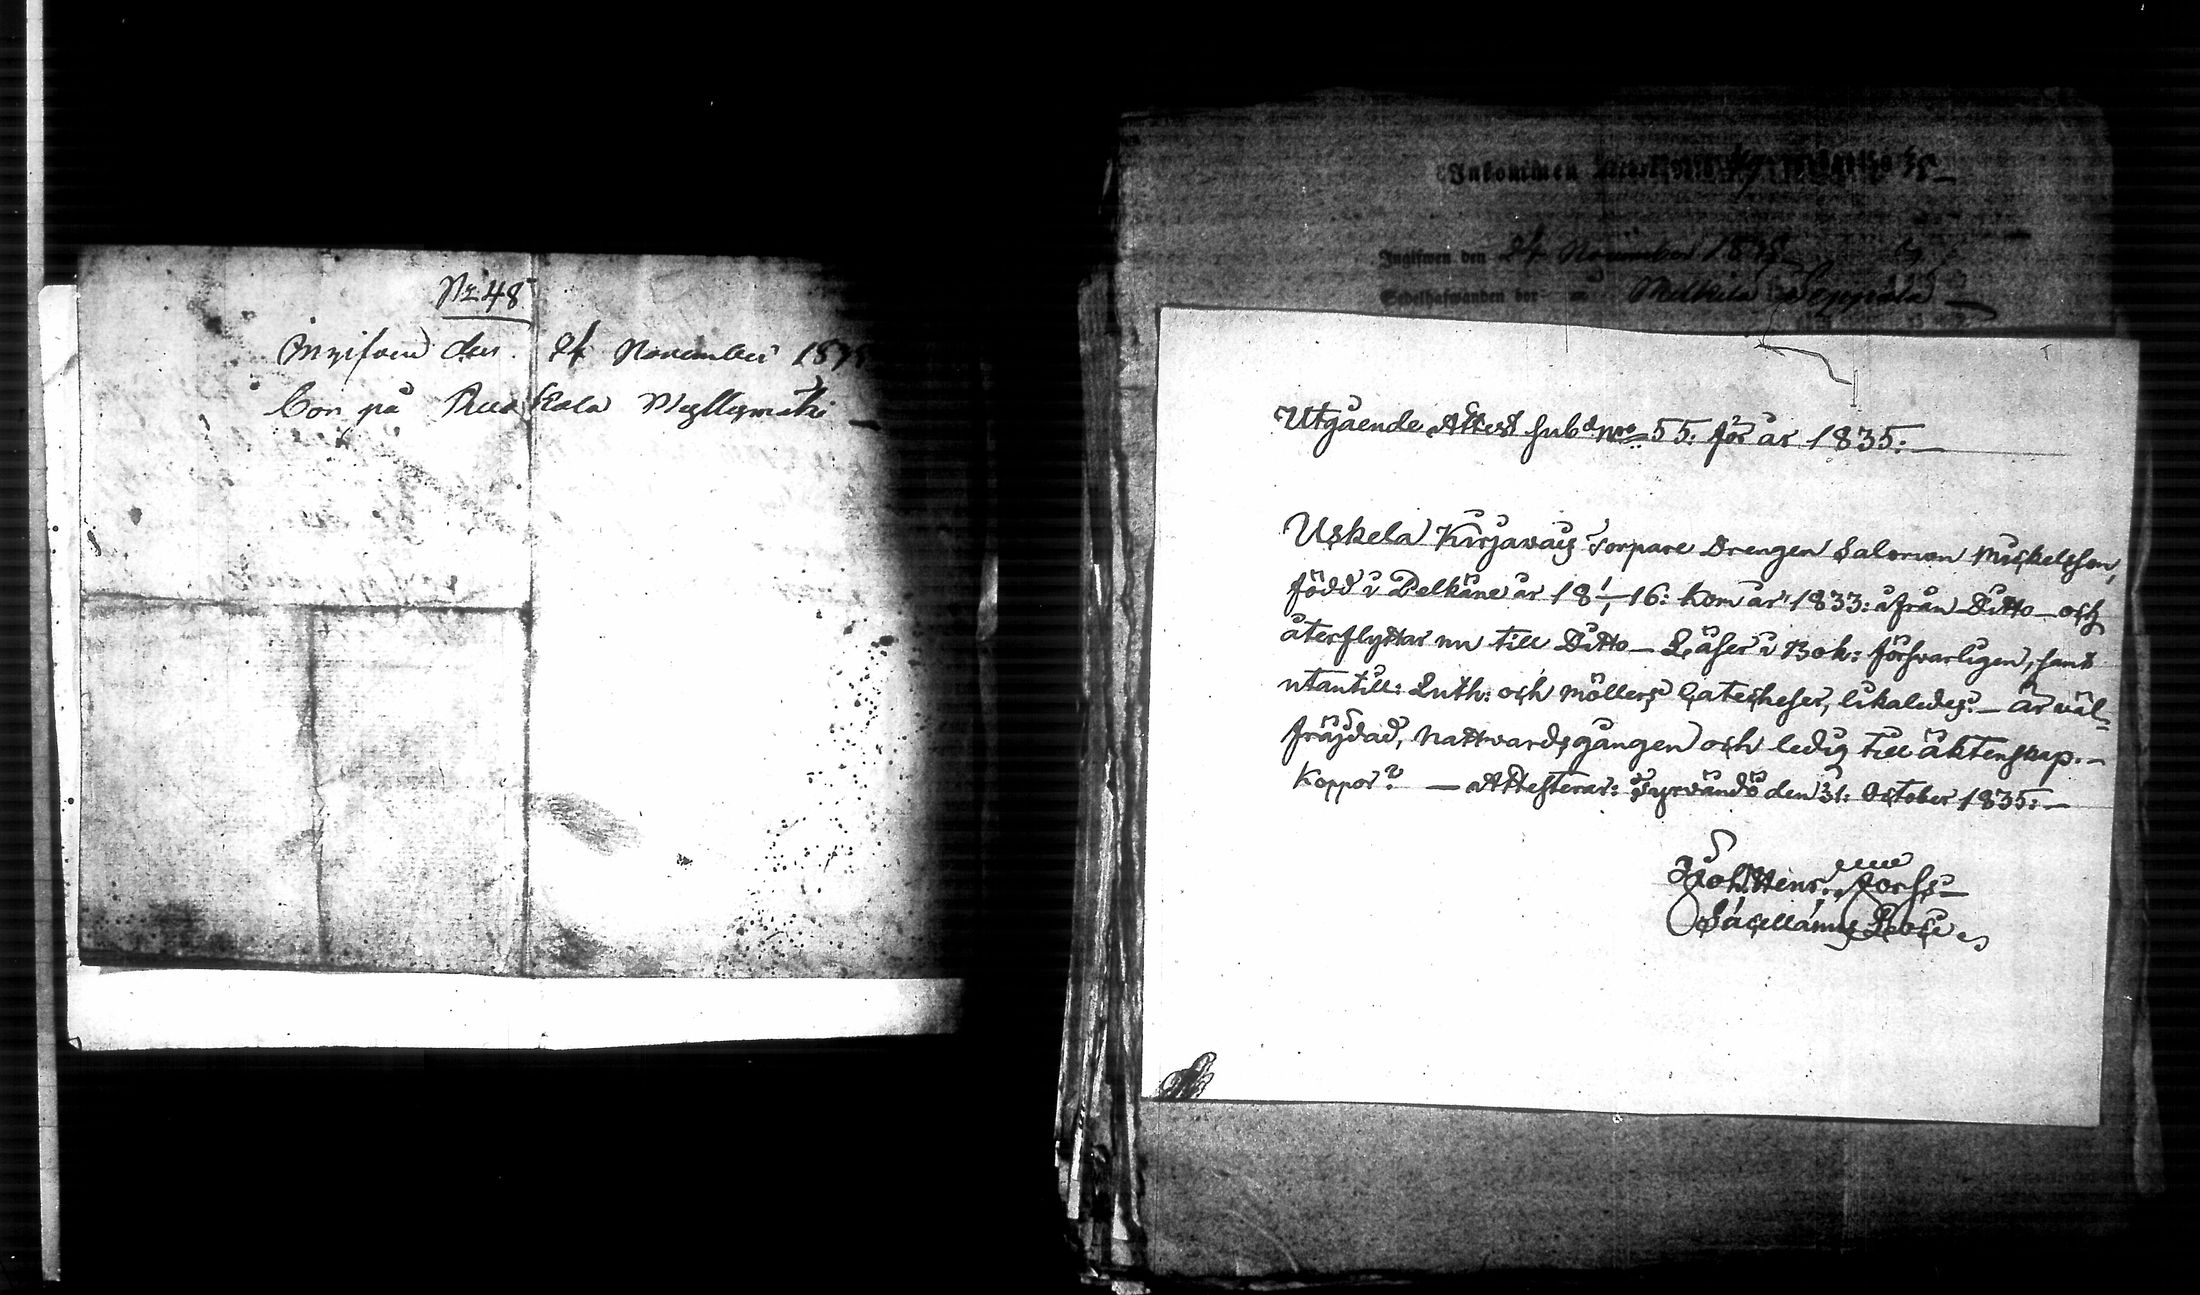 No 48
Ingifven den 24 November 187
Bor på Myllymäki
Inkommen
Ingifwen den 24 November 18
Sedelhafwanden bor å Mellilä Seppälä
Utgående Attest sub No 55: för år 1835:
Uskela Kirjavais Torpare Drengen Salomon Mickelsson,
född i Pelkäne år 18 1/1 16: Kom år 1833: ifrån Ditto och
återflyttar nu till Ditto Läser i Bok: försvarligen, samt
utantill: Luth: och Möllers Catecheser, likaledes. Är väl-
fräjdad, Nattwardsgången och ledig till äktenskap.
Koppor? Attesterar: Tyrvändö den 31: October 1835:
Joh: Henr: Forss
Sacellanus Loci